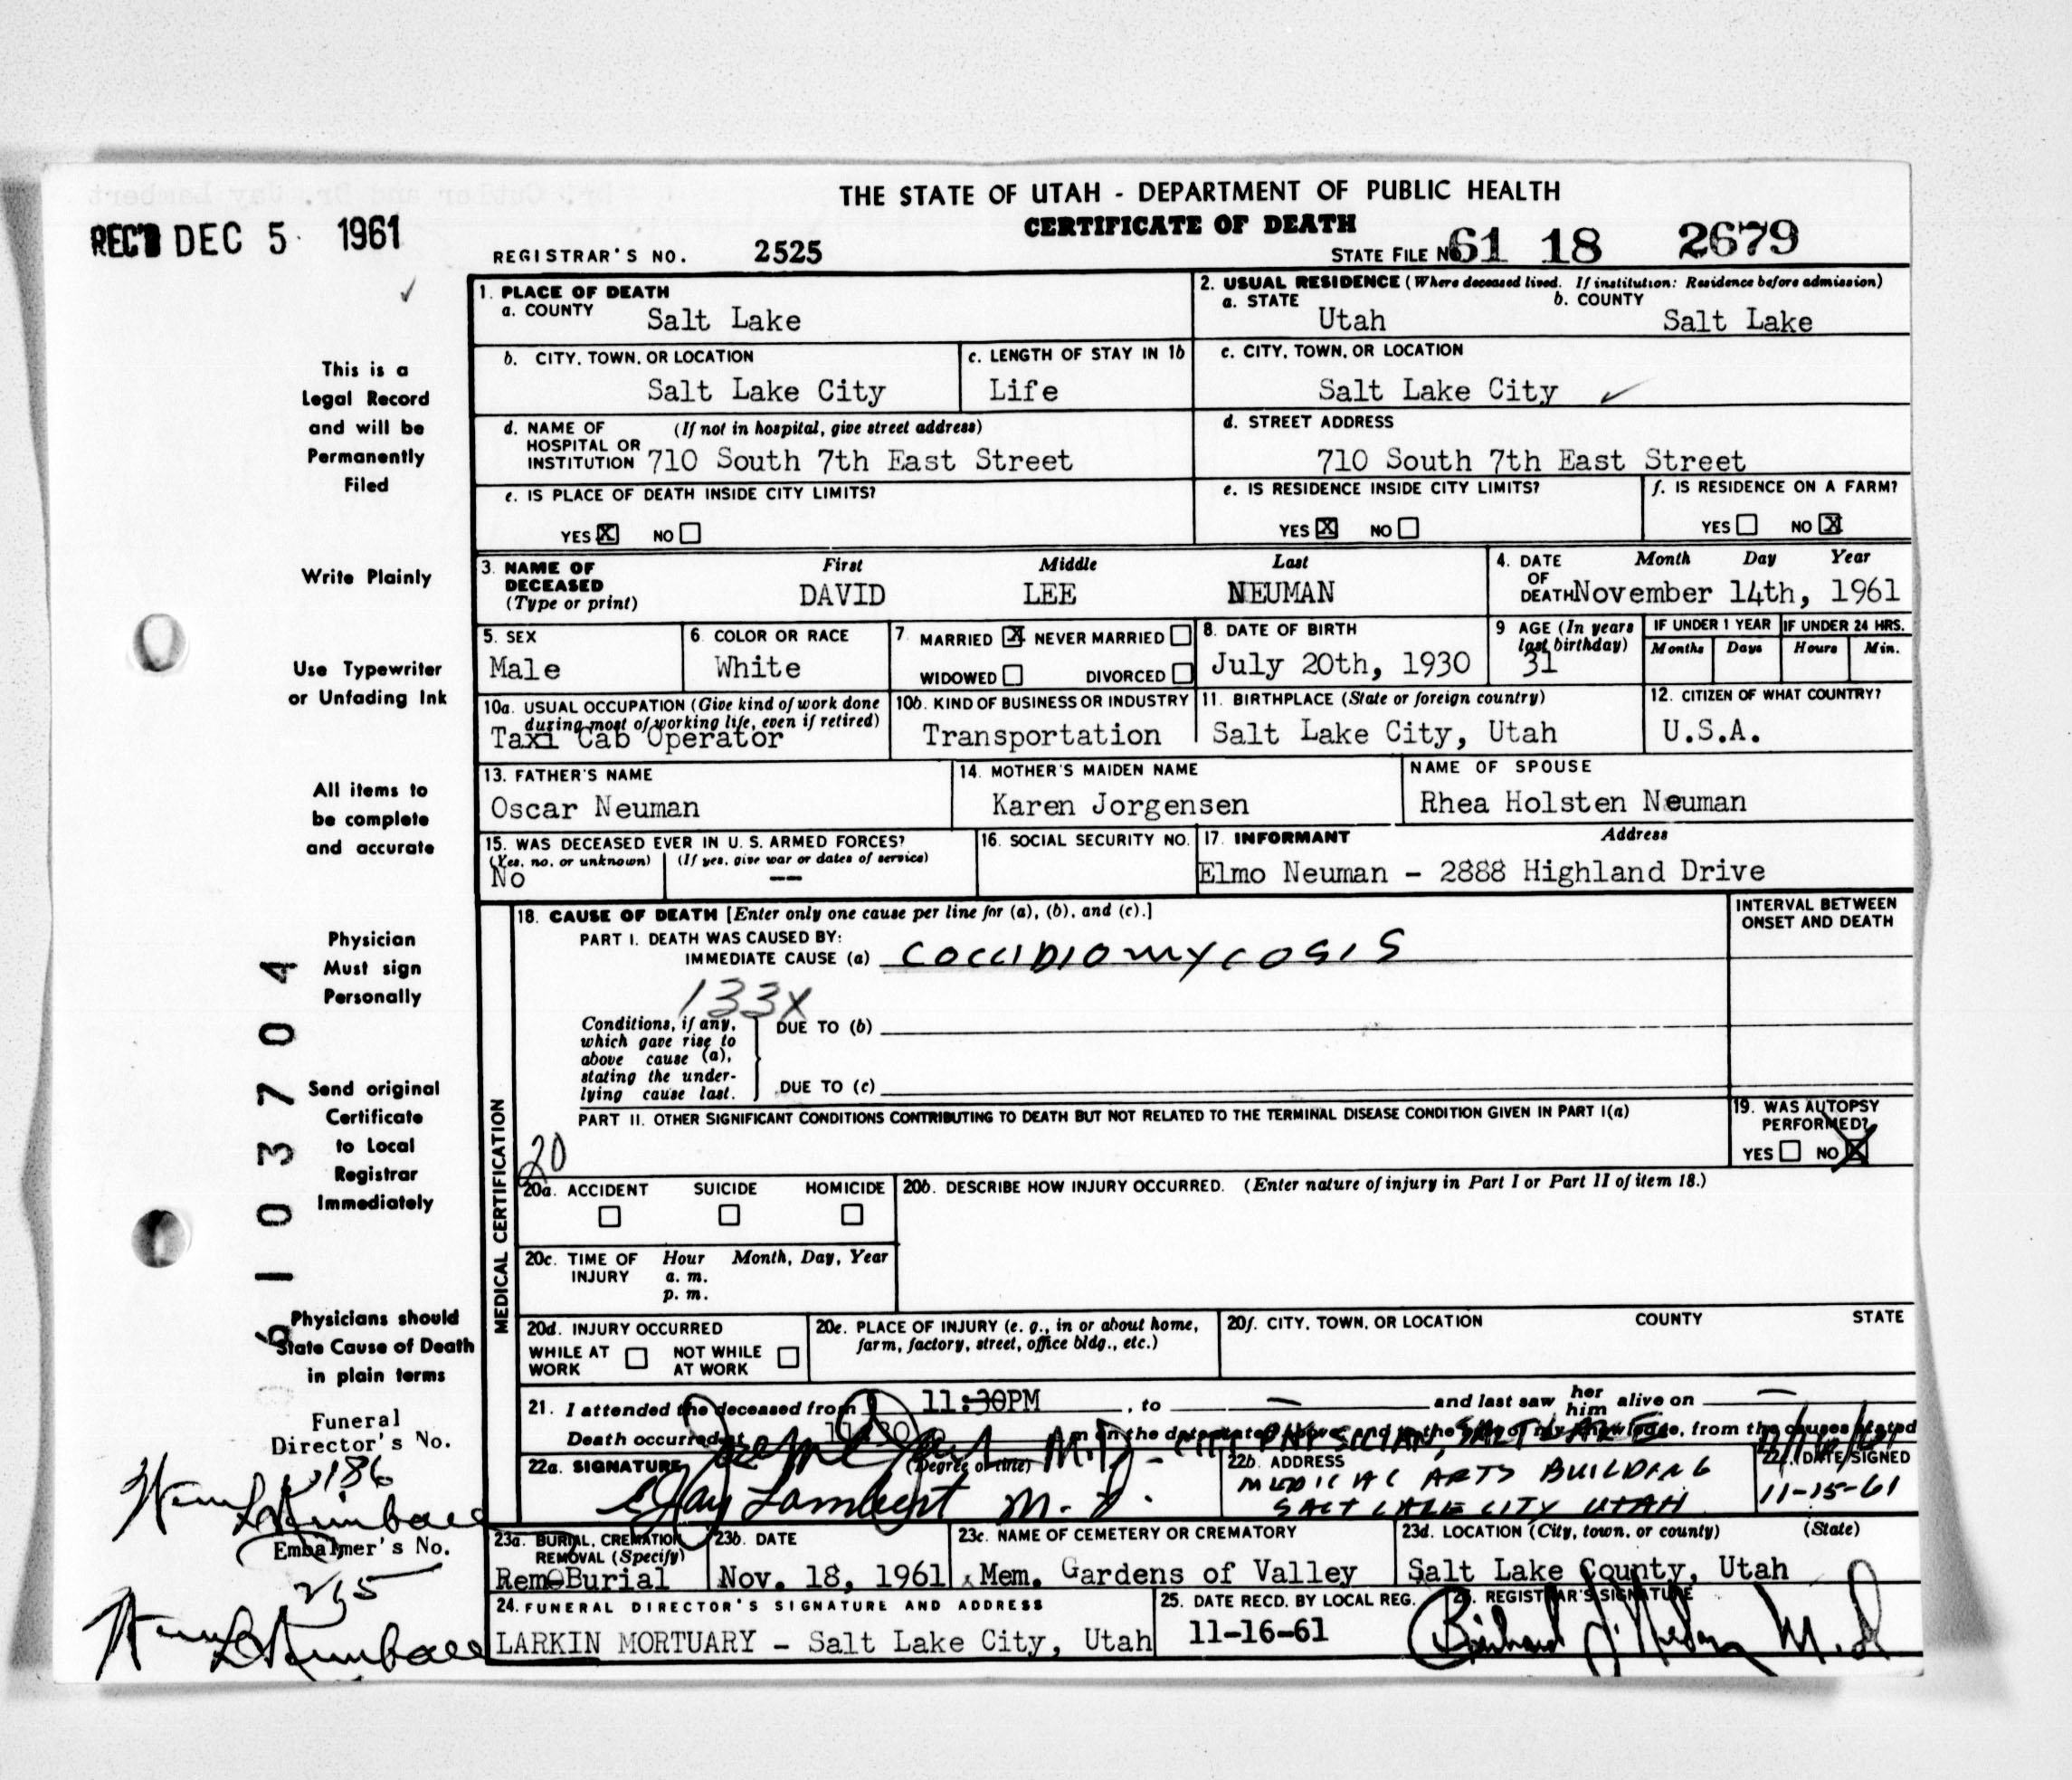 THE STATE OF UTAH - DEPARTMENT OF PUBLIC HEALTH
CERTIFICATE OF DEATH
REC'D DEC 5 1961
REGISTRAR'S NO. 2525
STATE FILE NO 61 18 2679
1. PLACE OF DEATH
a. COUNTY Salt Lake
2. USUAL RESIDENCE (Where deceased lived. If institution: Residence before admission)
a. STATE Utah b. COUNTY Salt Lake
b. CITY, TOWN, OR LOCATION Salt Lake City
c. LENGTH OF STAY IN 1b Life
c. CITY, TOWN, OR LOCATION Salt Lake City
d. NAME OF HOSPITAL OR INSTITUTION (If not in hospital, give street address) 710 South 7th East Street
d. STREET ADDRESS 710 South 7th East Street
e. IS PLACE OF DEATH INSIDE CITY LIMITS? YES X NO
e. IS RESIDENCE INSIDE CITY LIMITS? YES X NO
f. IS RESIDENCE ON A FARM? YES NO X
3. NAME OF DECEASED (Type or print) First Middle Last
DAVID LEE NEUMAN
4. DATE OF DEATH Month Day Year
November 14th, 1961
5. SEX Male
6. COLOR OR RACE White
7. MARRIED X NEVER MARRIED
WIDOWED DIVORCED
8. DATE OF BIRTH July 20th, 1930
9 AGE (In years last birthday) 31
IF UNDER 1 YEAR Months Days
IF UNDER 24 HRS. Hours Min.
10a. USUAL OCCUPATION (Give kind of work done during most of working life, even if retired)
Taxi Cab Operator
10b. KIND OF BUSINESS OR INDUSTRY Transportation
11. BIRTHPLACE (State or foreign country) Salt Lake City, Utah
12. CITIZEN OF WHAT COUNTRY? U.S.A.
13. FATHER'S NAME Oscar Neuman
14. MOTHER'S MAIDEN NAME Karen Jorgensen
NAME OF SPOUSE Rhea Holsten Neuman
15. WAS DECEASED EVER IN U. S. ARMED FORCES?
(Yes, no, or unknown) (If yes, give war or dates of service)
No --
16. SOCIAL SECURITY NO.
17. INFORMANT Address
Elmo Neuman - 2888 Highland Drive
MEDICAL CERTIFICATION
18. CAUSE OF DEATH [Enter only one cause per line for (a), (b), and (c).]
INTERVAL BETWEEN ONSET AND DEATH
PART I. DEATH WAS CAUSED BY:
IMMEDIATE CAUSE (a) COCCIDIOMYCOSIS
133X
Conditions, if any, which gave rise to above cause (a), stating the underlying cause last.
DUE TO (b)
DUE TO (c)
PART II. OTHER SIGNIFICANT CONDITIONS CONTRIBUTING TO DEATH BUT NOT RELATED TO THE TERMINAL DISEASE CONDITION GIVEN IN PART I(a)
19. WAS AUTOPSY PERFORMED? YES NO X
20
20a. ACCIDENT SUICIDE HOMICIDE
20b. DESCRIBE HOW INJURY OCCURRED. (Enter nature of injury in Part I or Part II of item 18.)
20c. TIME OF INJURY Hour Month, Day, Year
a. m.
p. m.
20d. INJURY OCCURRED
WHILE AT WORK NOT WHILE AT WORK
20e. PLACE OF INJURY (e. g., in or about home, farm, factory, street, office bldg., etc.)
20f. CITY, TOWN, OR LOCATION COUNTY STATE
21. I attended the deceased from 11:30PM , to — and last saw her him alive on —
Death occurred at 11:30 m on the date stated above, and to the best of my knowledge, from the causes stated
M.D. CITY PHYSICIAN, SALT LAKE
22a. SIGNATURE (Degree or title)
E Jay Lambert M. D.
22b. ADDRESS
MEDICAL ARTS BUILDING
SALT LAKE CITY UTAH
22c. DATE SIGNED
11-15-61
23a. BURIAL, CREMATION, REMOVAL (Specify)
Rem-Burial
23b. DATE Nov. 18, 1961
23c. NAME OF CEMETERY OR CREMATORY Mem. Gardens of Valley
23d. LOCATION (City, town, or county) (State)
Salt Lake County, Utah
24. FUNERAL DIRECTOR'S SIGNATURE AND ADDRESS
LARKIN MORTUARY - Salt Lake City, Utah
25. DATE RECD. BY LOCAL REG. 11-16-61
REGISTRAR'S SIGNATURE
This is a
Legal Record
and will be
Permanently
Filed
Write Plainly
Use Typewriter
or Unfading Ink
All items to
be complete
and accurate
Physician
Must sign
Personally
Send original
Certificate
to Local
Registrar
Immediately
Physicians should
State Cause of Death
in plain terms
6103704
Funeral
Director's No.
186
Embalmer's No.
265